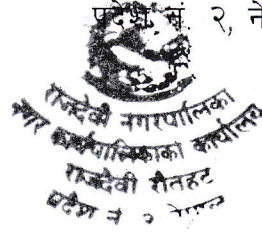 प्रदेश नं. २, ने
राजदेवी नगरपालिका
नगर कार्यपालिकाको कार्यालय
राजदेवी रौतहट
प्रदेश नं २ नेपाल